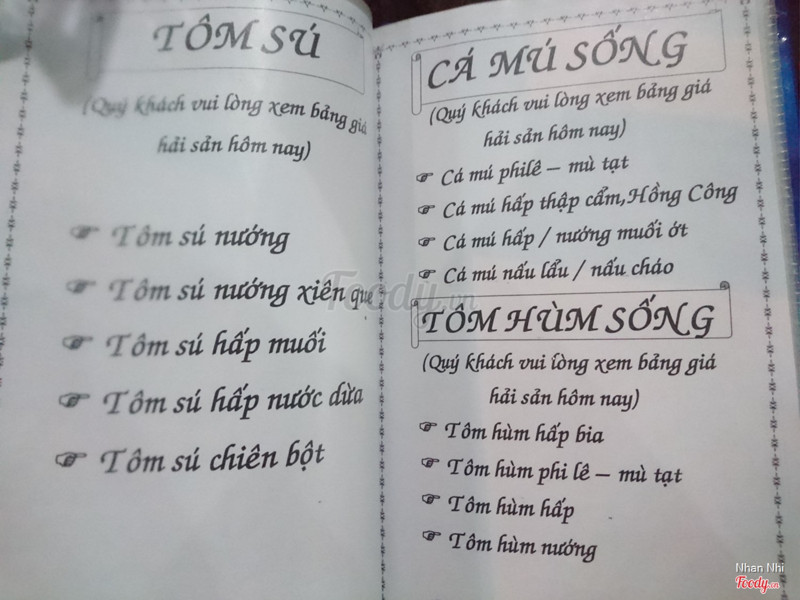 TÔM SÚ
(Quý khách vui lòng xem bảng giá
hải sản hôm nay)
Tôm sú nướng
Tôm sú nướng xiên que
Tôm sú hấp muối
Tôm sú hấp nước dừa
Tôm sú chiên bột
CÁ MÚ SỐNG
(Quý khách vui lòng xem bảng giá
hải sản hôm nay)
Cá mú philê – mù tạt
Cá mú hấp thập cẩm,Hồng Công
Cá mú hấp / nướng muối ớt
Cá mú nấu lẩu / nấu cháo
TÔM HÙM SỐNG
(Quý khách vui lòng xem bảng giá
hải sản hôm nay)
Tôm hùm hấp bia
Tôm hùm phi lê – mù tạt
Tôm hùm hấp
Tôm hùm nướng
Foody.vn
Nhan Nhi
Foody.vn